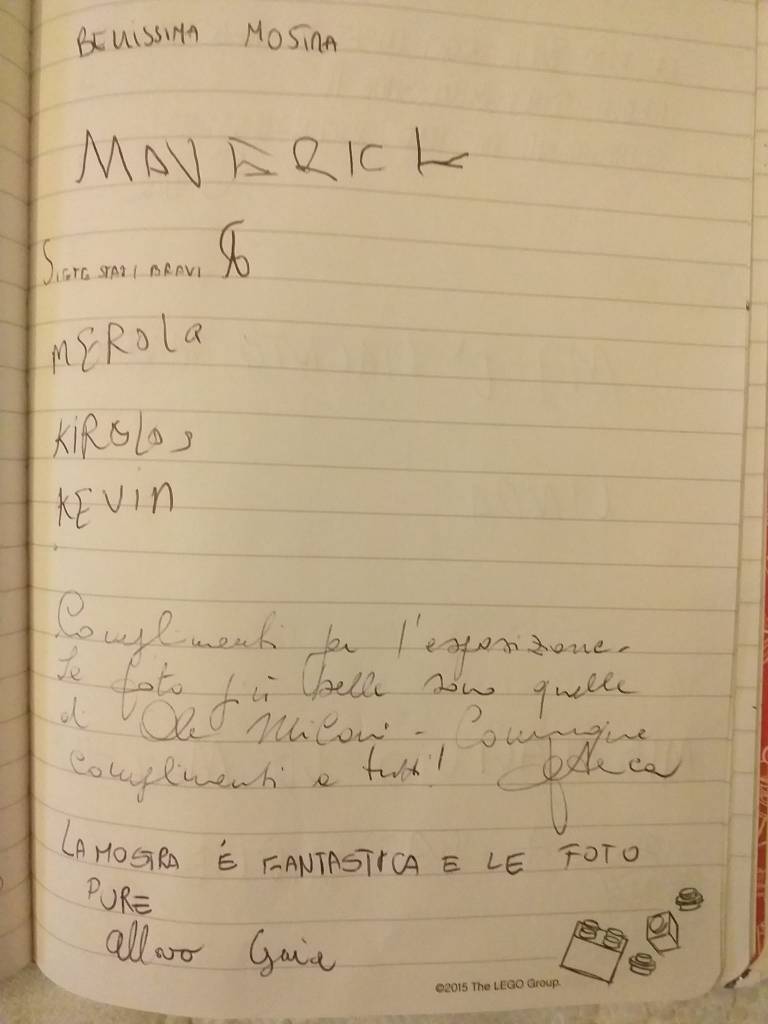 BELLISSIMA MOSTRA
MAVERICK
SIETE STATI BRAVI
MEROLA
KIROLOS
KEVIN
Complimenti per l'esposizione.
Le foto più belle sono quelle
di Comunque
complimenti a tutti!
LA MOSTRA É FANTASTICA E LE FOTO
PURE
Gaia
©2015 The LEGO Group.